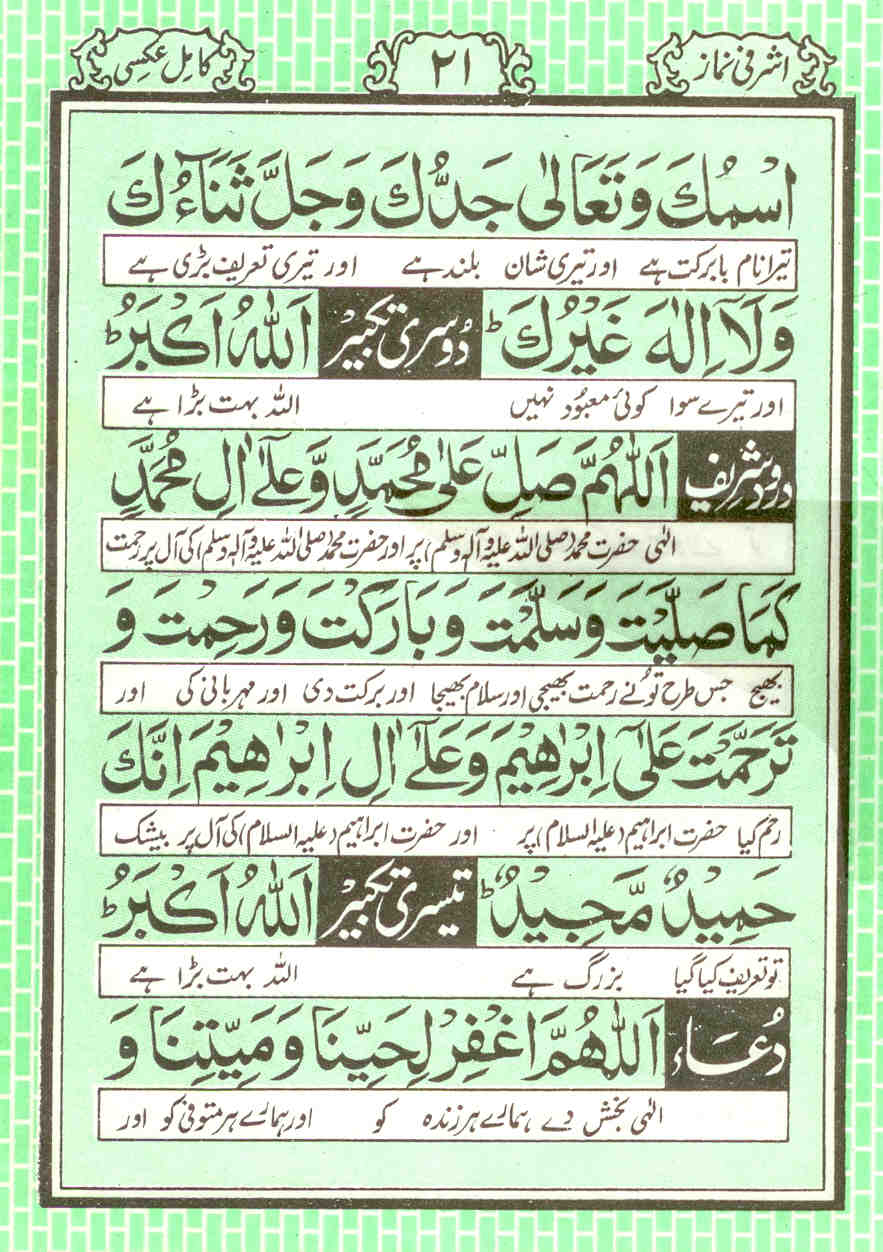 اشرفی نماز ۲۱ کامل عکسی
اسْمُكَ وَتَعَالٰی جَدُّكَ وَجَلَّ ثَنَآءُكَ
تیرا نام بابرکت ہے اور تیری شان بلند ہے اور تیری تعریف بڑی ہے
وَلَآ اِلٰهَ غَيْرُكَ ؕ دُوسری تکبیر اَللّٰهُ اَكْبَرُ ؕ
اور تیرے سوا کوئی معبُود نہیں اللہ بہت بڑا ہے
درُود شریف اَللّٰهُمَّ صَلِّ عَلٰی مُحَمَّدٍ وَّعَلٰٓی اٰلِ مُحَمَّدٍ
الٰہی حضرت محمد (صلی اللہ علیہ وآلہٖ وسلم) پر اور حضرت محمد (صلی اللہ علیہ وآلہٖ وسلم) کی آل پر رحمت
كَمَا صَلَّيْتَ وَسَلَّمْتَ وَبَارَكْتَ وَرَحِمْتَ وَ
بھیج جس طرح تُو نے رحمت بھیجی اور سلام بھیجا اور برکت دی اور مہربانی کی اور
تَرَحَّمْتَ عَلٰٓی اِبْرٰهِيْمَ وَعَلٰٓی اٰلِ اِبْرٰهِيْمَ اِنَّكَ
رحم کیا حضرت ابراہیم (علیہ السلام) پر اور حضرت ابراہیم (علیہ السلام) کی آل پر بیشک
حَمِيْدٌ مَّجِيْدٌ ؕ تیسری تکبیر اَللّٰهُ اَكْبَرُ ؕ
تو تعریف کیا گیا بزرگ ہے اللہ بہت بڑا ہے
دُعَاء اَللّٰهُمَّ اغْفِرْ لِحَيِّنَا وَمَيِّتِنَا وَ
الٰہی بخش دے ہمارے ہر زندہ کو اور ہمارے ہر متوفی کو اور